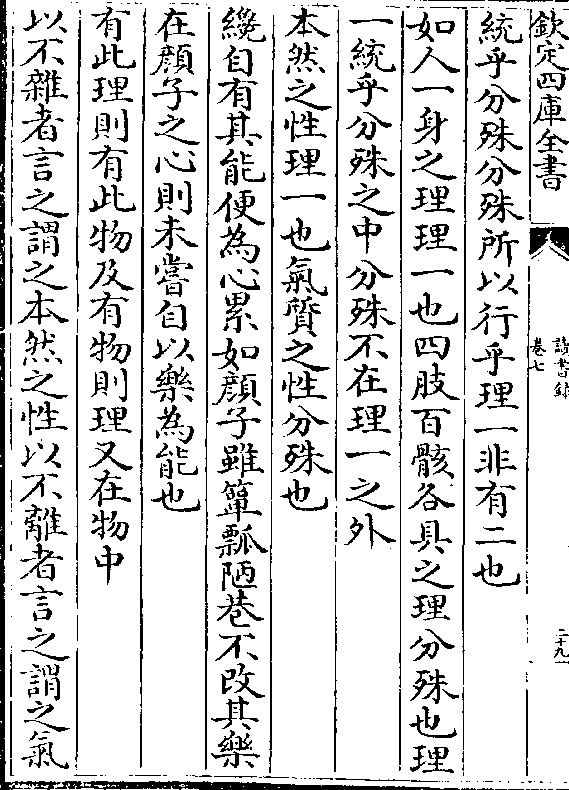 欽定四庫全書
讀書錄
卷七
二十九
統乎分殊分殊所以行乎理一非有二也
如人一身之理理一也四肢百骸各具之理分殊也理
一統乎分殊之中分殊不在理一之外
本然之性理一也氣質之性分殊也
纔自有其能便為心累如顔子雖簞瓢陋巷不改其樂
在顔子之心則未嘗自以樂為能也
有此理則有此物及有物則理又在物中
以不雜者言之謂之本然之性以不離者言之謂之氣